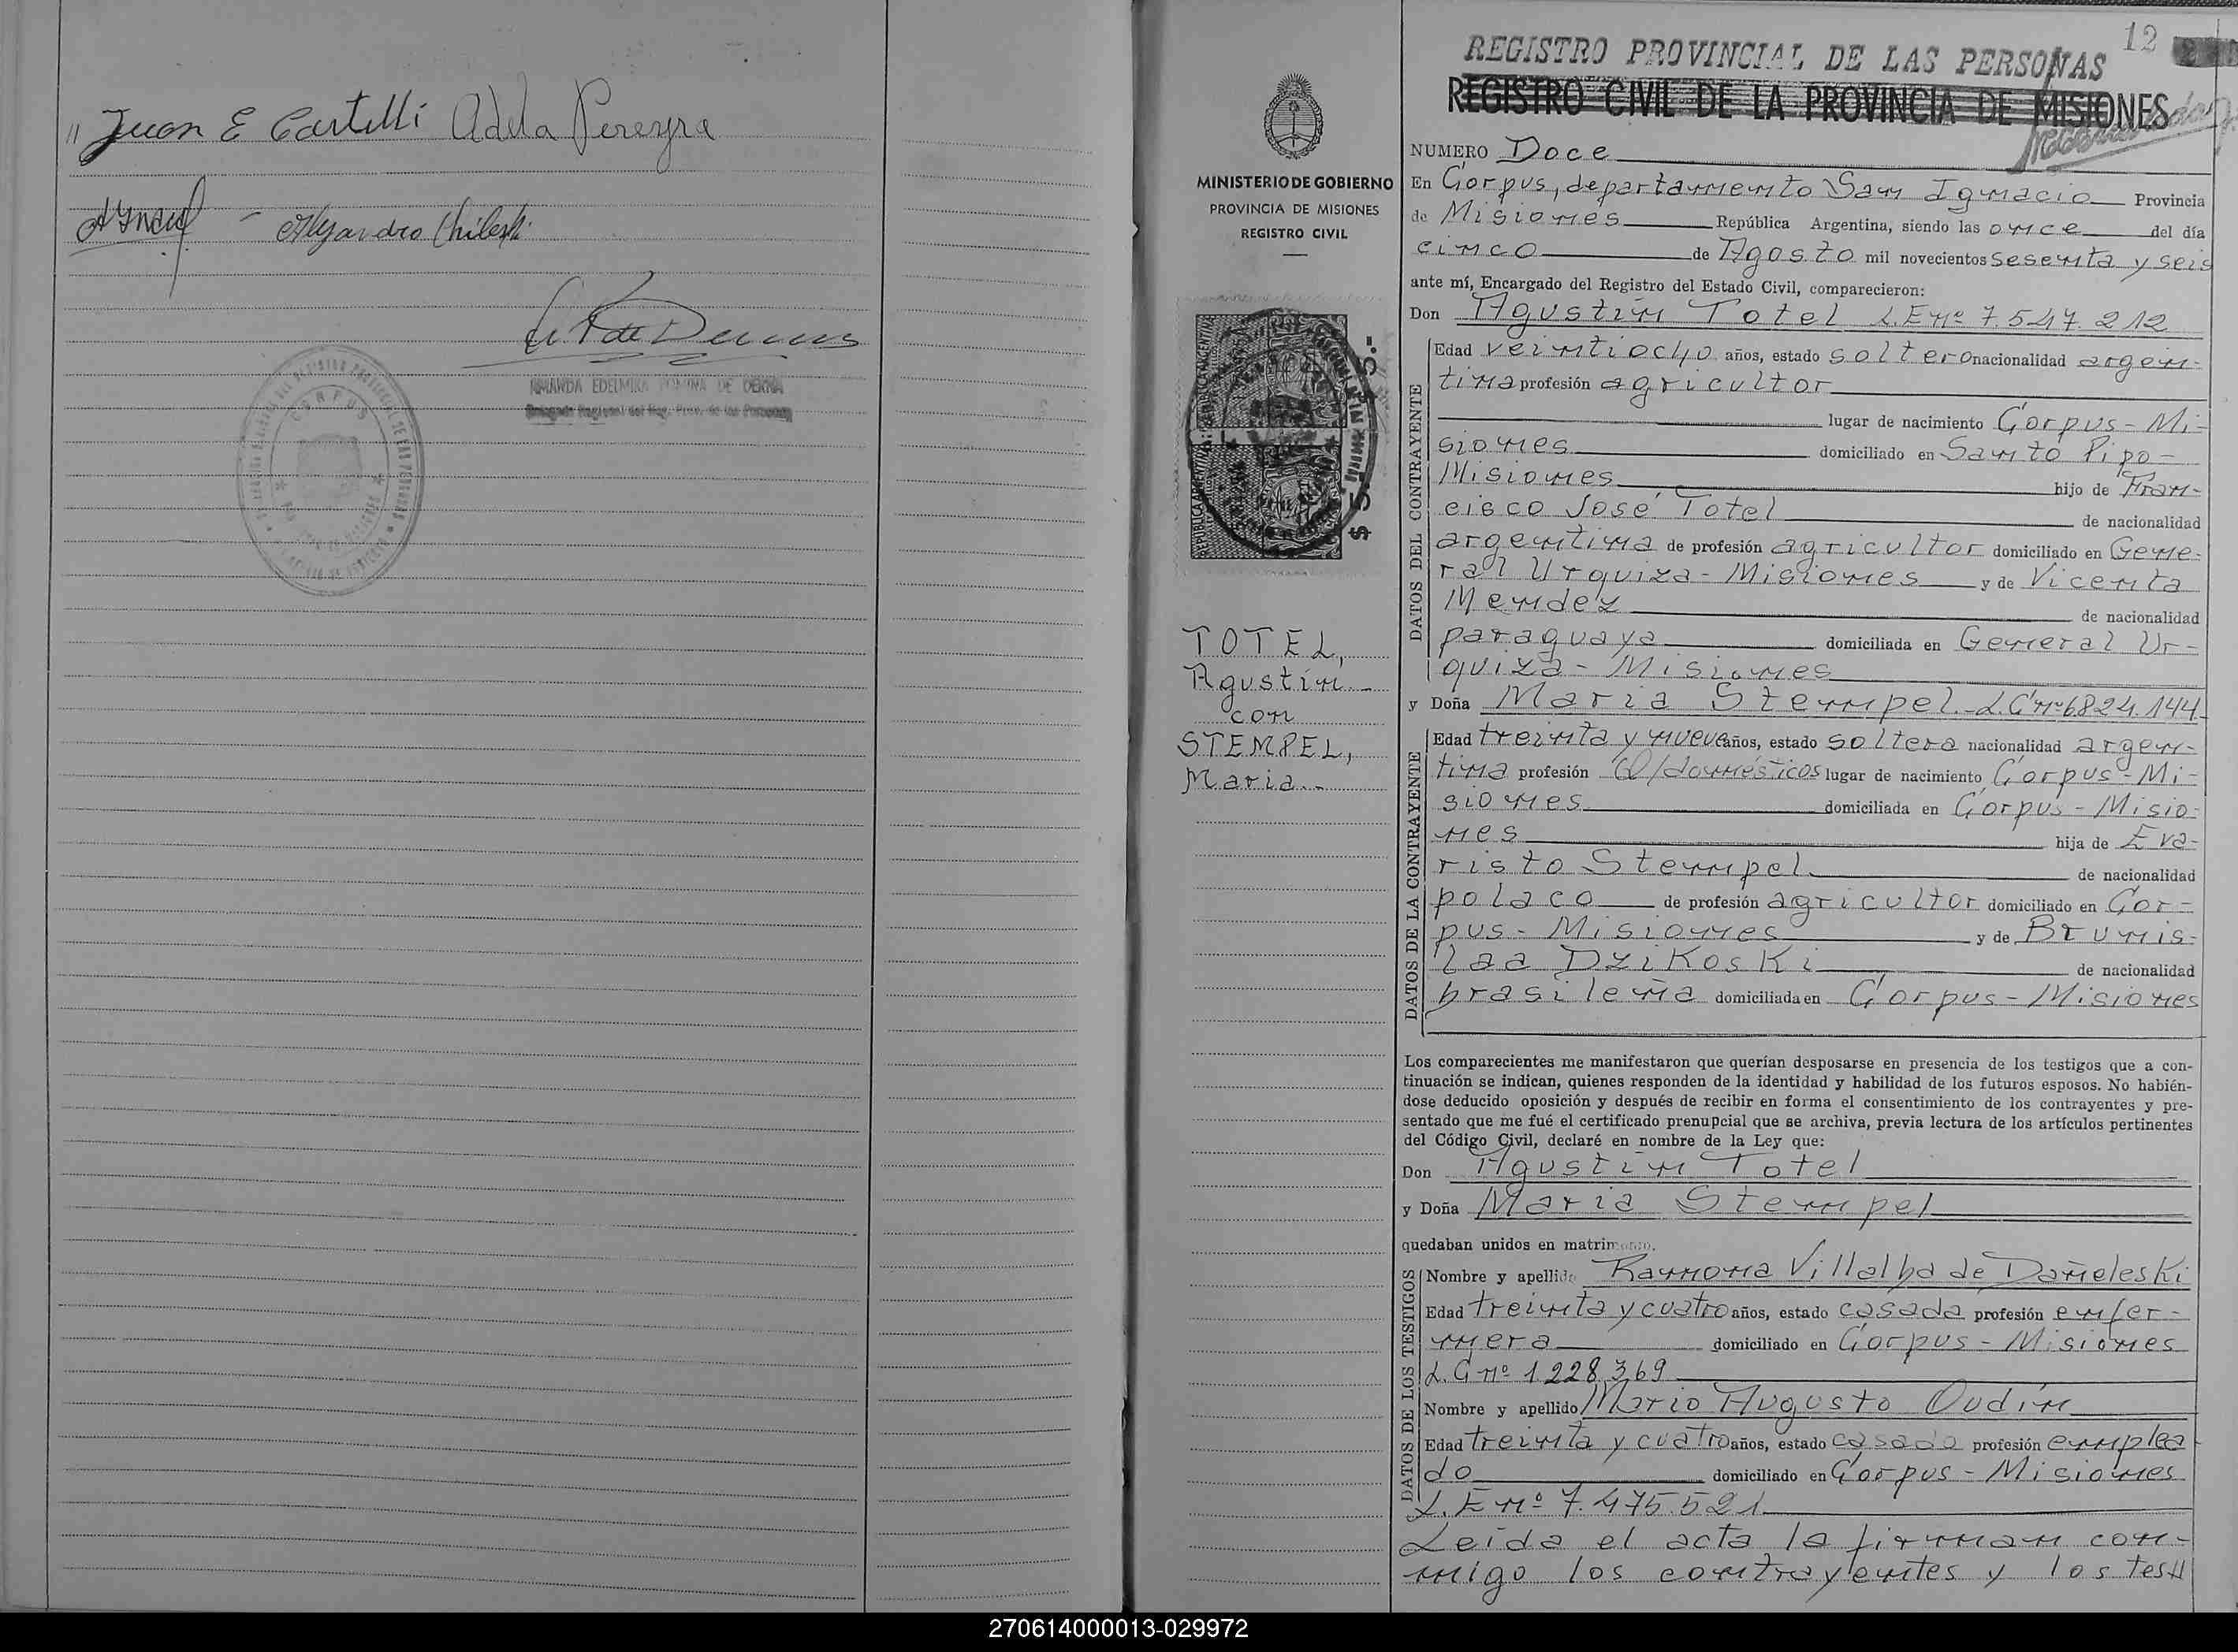 " Juan E Castelli Adela Pereyra
Alejandro
AMANDA EDELMIRA ROMINA DE DERNA
Delegada Regional del Reg. Prov. de las Personas
CORPUS
12
REGISTRO PROVINCIAL DE LAS PERSONAS
REGISTRO CIVIL DE LA PROVINCIA DE MISIONES
MINISTERIO DE GOBIERNO
PROVINCIA DE MISIONES
REGISTRO CIVIL
REPUBLICA ARGENTINA
REPUBLICA ARGENTINA
$ 5.-
$ 5.-
TOTEL,
Agustín
con
STEMPEL,
Maria.-
NUMERO Doce
En Corpus, departamento San Ignacio Provincia
de Misiones República Argentina, siendo las once del día
cinco de Agosto mil novecientos sesenta y seis
ante mí, Encargado del Registro del Estado Civil, comparecieron:
Don Agustín Totel L.E nº 7.547.212
DATOS DEL CONTRAYENTE
Edad veintiocho años, estado soltero nacionalidad argen-
tina profesión agricultor
lugar de nacimiento Corpus - Mi-
siones domiciliado en Santo Pipo-
Misiones hijo de Fran-
cisco José Totel de nacionalidad
argentina de profesión agricultor domiciliado en Gene-
ral Urquiza - Misiones y de Vicenta
Mendez de nacionalidad
paraguaya domiciliada en General Ur-
quiza - Misiones
y Doña Maria Stempel.- L.C nº 6.824.144
DATOS DE LA CONTRAYENTE
Edad treinta y nueve años, estado soltera nacionalidad argen-
tina profesión Q/domésticos lugar de nacimiento Corpus - Mi-
siones domiciliada en Corpus - Misio-
nes hija de Eva-
risto Stempel de nacionalidad
polaco de profesión agricultor domiciliado en Cor-
pus - Misiones y de Brunis-
laa Dzikoski de nacionalidad
brasileña domiciliada en Corpus - Misiones
Los comparecientes me manifestaron que querían desposarse en presencia de los testigos que a con-
tinuación se indican, quienes responden de la identidad y habilidad de los futuros esposos. No habién-
dose deducido oposición y después de recibir en forma el consentimiento de los contrayentes y pre-
sentado que me fué el certificado prenupcial que se archiva, previa lectura de los artículos pertinentes
del Código Civil, declaré en nombre de la Ley que:
Don Agustín Totel
y Doña Maria Stempel
quedaban unidos en matrimonio.
DATOS DE LOS TESTIGOS
Nombre y apellido Ramona Villalba de Dañeleski
Edad treinta y cuatro años, estado casada profesión enfer-
mera domiciliado en Corpus - Misiones
L.C nº 1.228.369
Nombre y apellido Mario Augusto Oudín
Edad treinta y cuatro años, estado casado profesión emplea
do domiciliado en Corpus - Misiones
L.E nº 7.475.521
Leída el acta la firman con-
migo los contrayentes y los testi
270614000013-029972